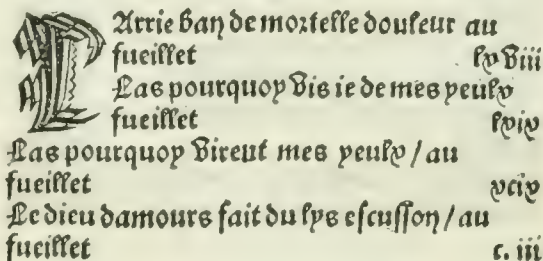 LArrie ban de mortelle douleur au
fueillet lxviii
Las pourquoy vis ie de mes yeulx
fueillet lxix
Las pourquoy virent mes yeulx / au
fueillet xcix
Le dieu damours fait du lys escusson / au
fueillet c. iii